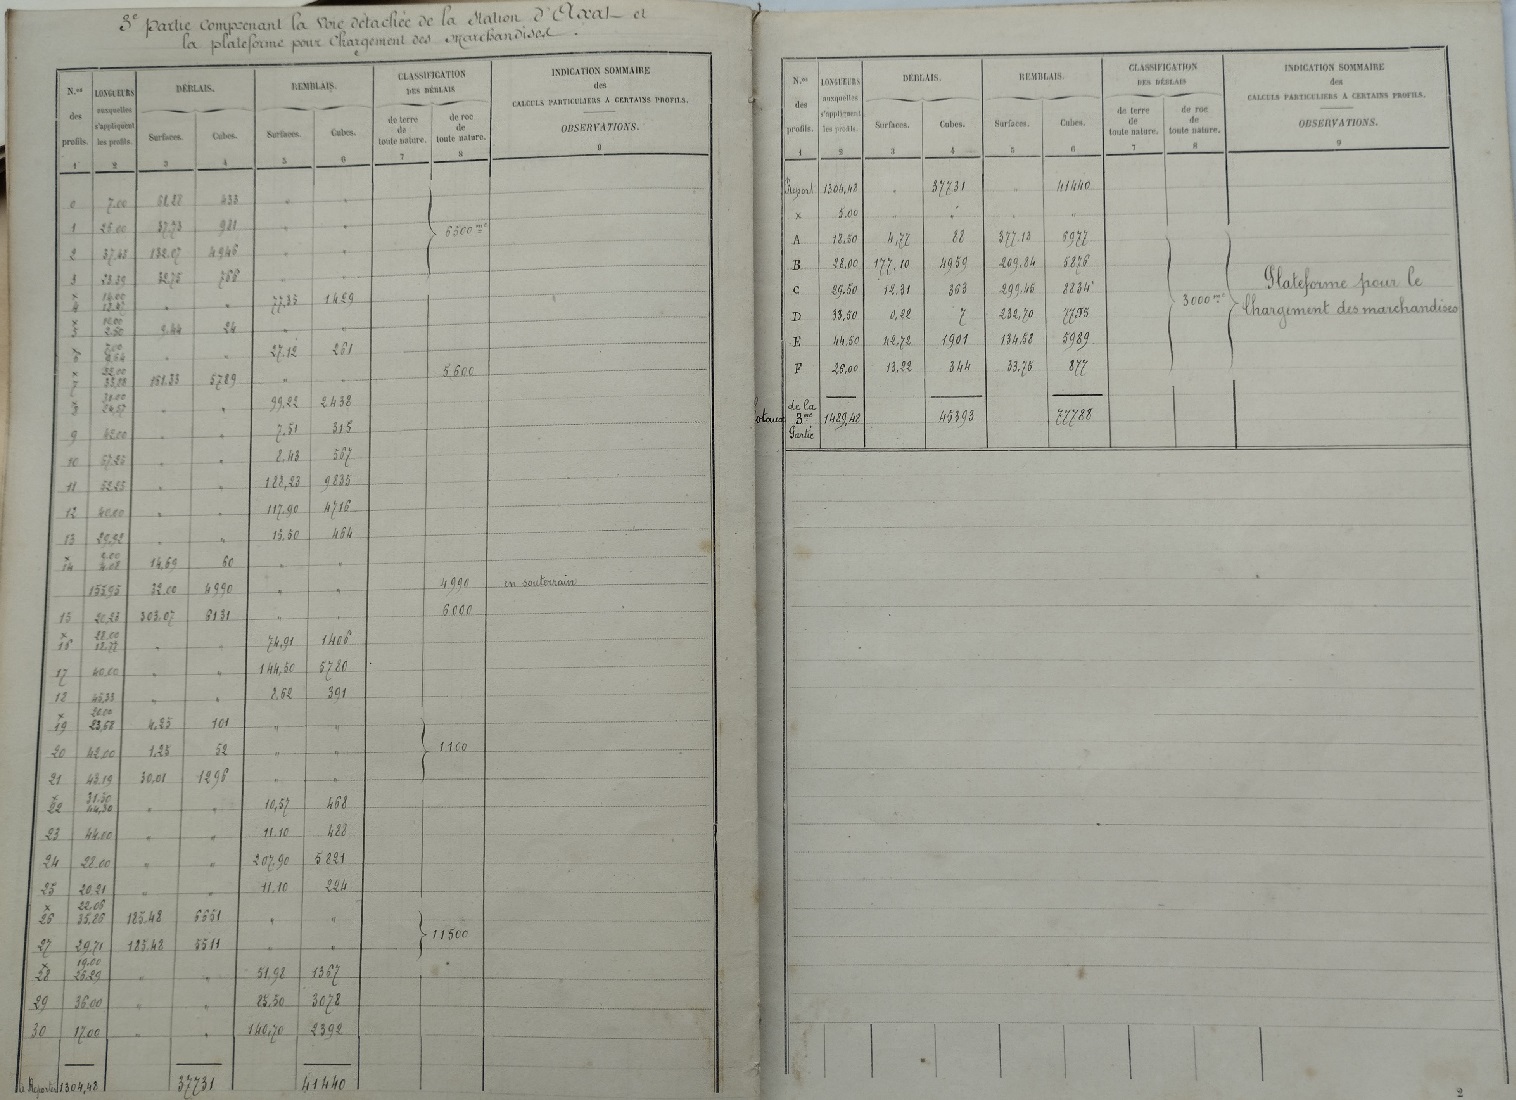 3e Partie Comprenant la Voie détachée de la Station d'Axat et
la plateforme pour Chargement des Marchandises.
N.os des profils. LONGUEURS auxquelles s'appliquent les profils. DÉBLAIS. Surfaces. Cubes. REMBLAIS. Surfaces. Cubes. CLASSIFICATION DES DÉBLAIS de terre de toute nature. de roc de toute nature. INDICATION SOMMAIRE des CALCULS PARTICULIERS A CERTAINS PROFILS. OBSERVATIONS.
1 2 3 4 5 6 7 8 9
0 7.00 433 " "
1 37.73 981 " " 6500 m.c
2 132.07 4946 " "
3 32.75 766
x 14.00
4 " " 77.33 1429
x
5 9.44 24 " "
x 7.00
6 " " 27.12 261
x 22.00
7 5789 " " 5600
x
8 " " 99.22 2438
9 42.00 " " 7.51 315
10 " " 567
11 " " 9835
12 40.00 " " 117.90 4716
13 29.92 " " 15.50 464
x 2.00
14 4.08 14.69 60 " "
155.95 32.00 4990 " " 4990 en souterrain
15 20.23 303.07 6131 " " 6000
x 22.00
16 " " 74.91 1406
17 40.00 " " 144.50 5780
18 45.33 " " 8.62 391
x 20.00
19 23.68 4.25 101 " "
20 42.00 1.23 52 " " 1100
21 43.19 30.01 1296 " "
x 31.50
22 44.30 " " 10,57 468
23 44.00 " " 11.10 488
24 28.00 " " 207.90 5821
25 20.21 " " 11.10 224
x 22.06
26 185.48 6651 " "
27 29.71 5511 " " 11500
x 19.00
28 26.29 " " 51,98 1367
29 36.00 " " 85.50 3078
30 17.00 " " 140,70 2392
à Reporter 1304,48 37731 41440
N.os des profils. LONGUEURS auxquelles s'appliquent les profils. DÉBLAIS. Surfaces. Cubes. REMBLAIS. Surfaces. Cubes. CLASSIFICATION DES DÉBLAIS de terre de toute nature. de roc de toute nature. INDICATION SOMMAIRE des CALCULS PARTICULIERS A CERTAINS PROFILS. OBSERVATIONS.
1 2 3 4 5 6 7 8 9
Report 1304,48 " 37731 " 41440
x 5.00 " " " "
A 18.50 4,77 88 377.13 6977
B 28.00 177.10 4959 209.84 5876
C 29.50 12.31 363 299.46 8834
D 33,50 0,22 7 232,70 7795 3000 m.c Plateforme pour le
Chargement des marchandises
E 44.50 42,72 1901 134.58 5989
F 26.00 13,22 344 33.75 877
Totaux de la 3me Partie 1489,48 45393 77788
2